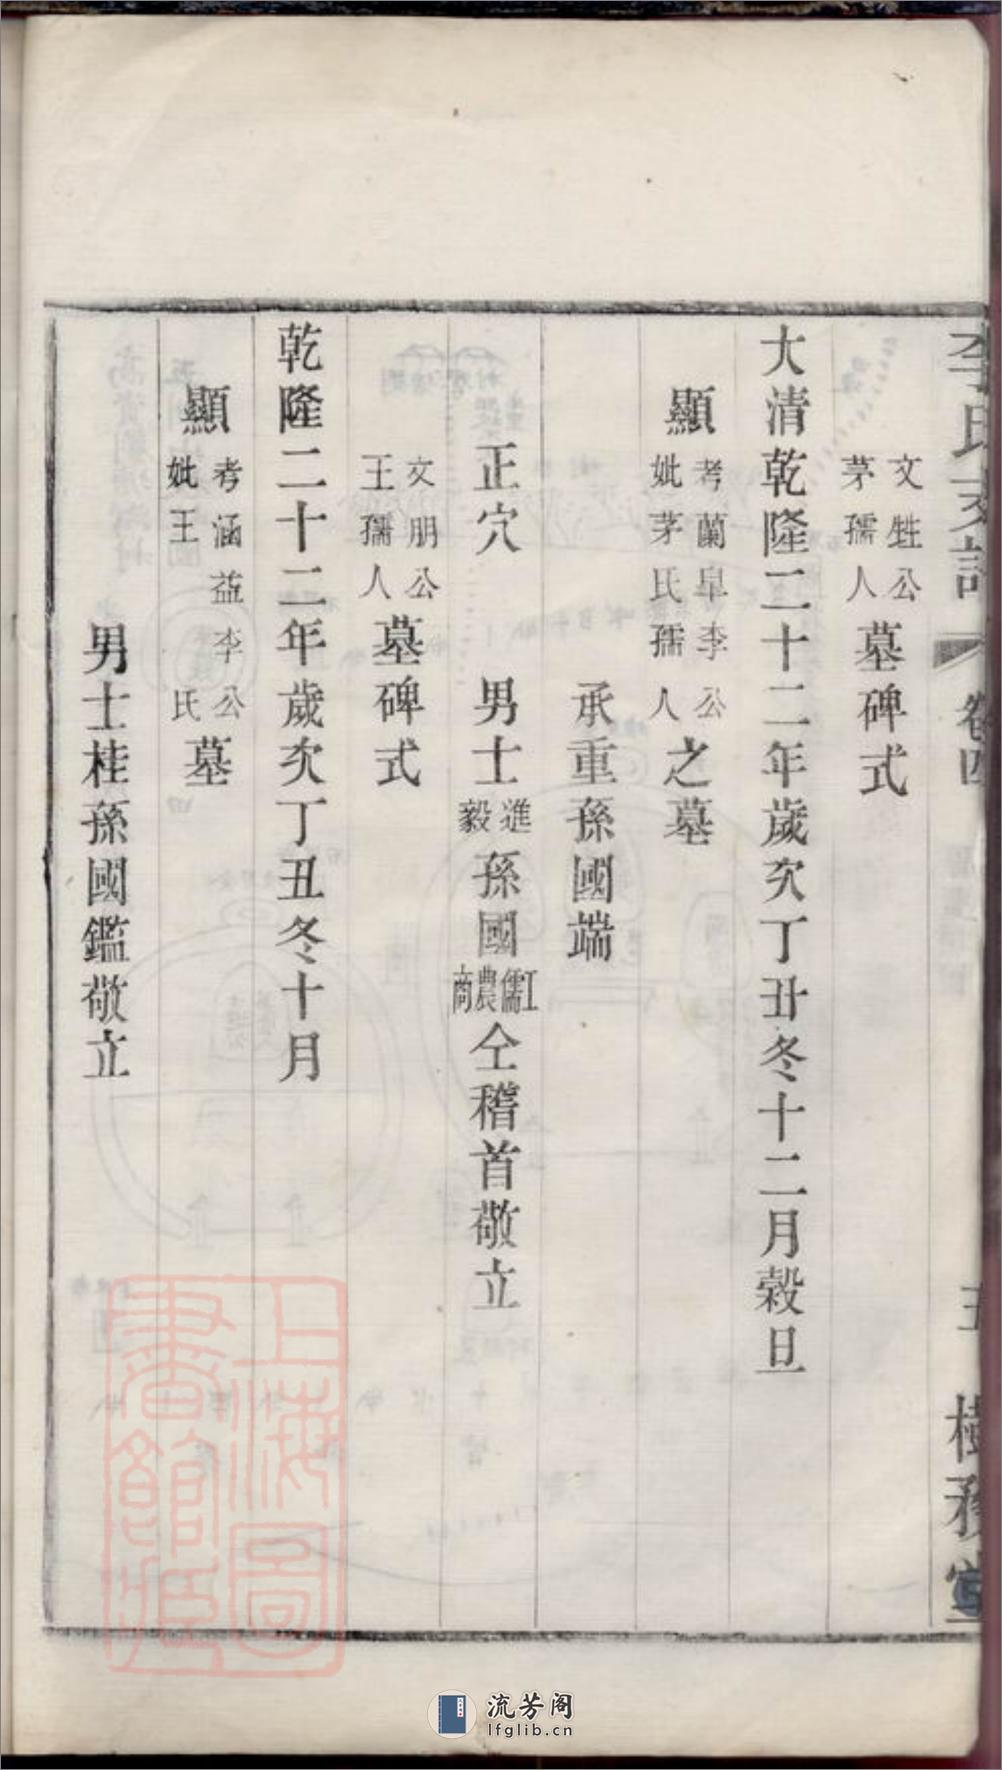 李氏支譜
卷四
五
樹務堂
文甡公茅孺人墓碑式
大清乾隆二十二年歲次丁丑冬十二月穀旦
顯考蘭皐李公妣茅氏孺人之墓
承重孫國端
正穴 男士進毅孫國工儒農商仝稽首敬立
文朋公王孺人墓碑式
乾隆二十二年歲次丁丑冬十月
顯考涵益李公妣王氏墓
男士桂孫國鑑敬立
上海圖書館藏
流芳阁
lfglib.cn